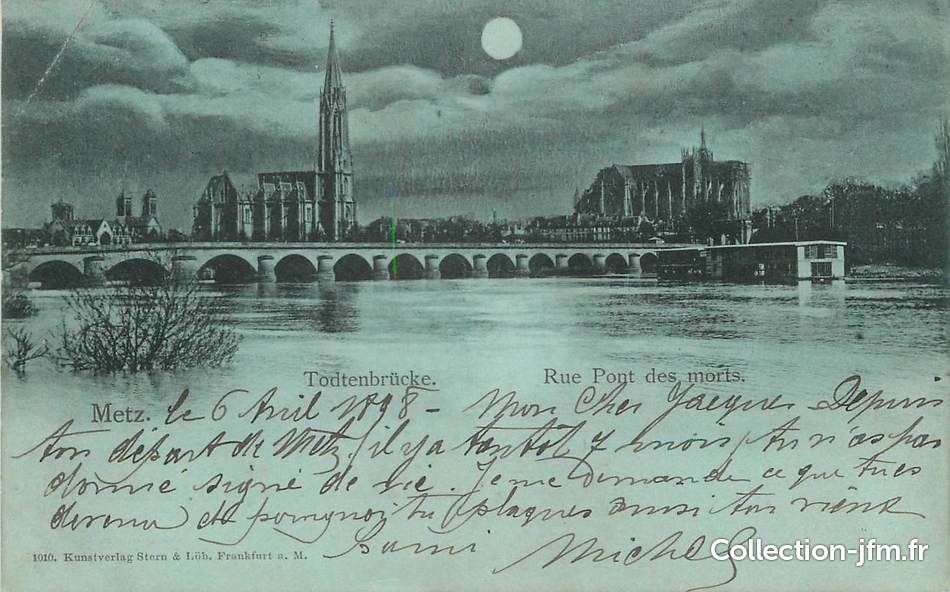 Todtenbrücke.
Rue Pont des morts.
Metz. le 6 Avril 1898 - Mon Cher Jacques Depuis
ton départ de Metz, il y a tantôt 7 mois, tu n'as pas
donné signe de vie. Je me demande ce que tu es
devenu et pourquoi tu plaques ainsi ton vieux
1010. Kunstverlag Stern & Löb. Frankfurt a. M.
ami Michel
Collection-jfm.fr